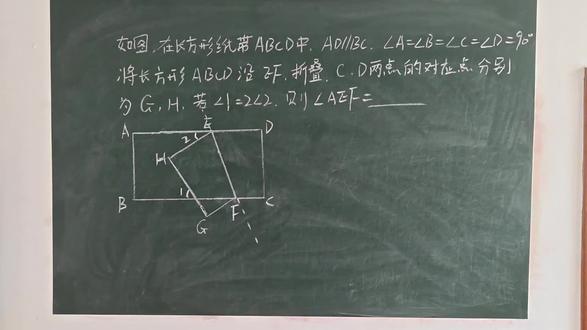 如图,在长方形纸带ABCD中,AD∥BC,∠A=∠B=∠C=∠D=90°
将长方形ABCD沿EF,折叠,C、D两点的对应点分别
为G,H,若∠1=2∠2,则∠AEF=
A E D
2
H
1
B F C
G